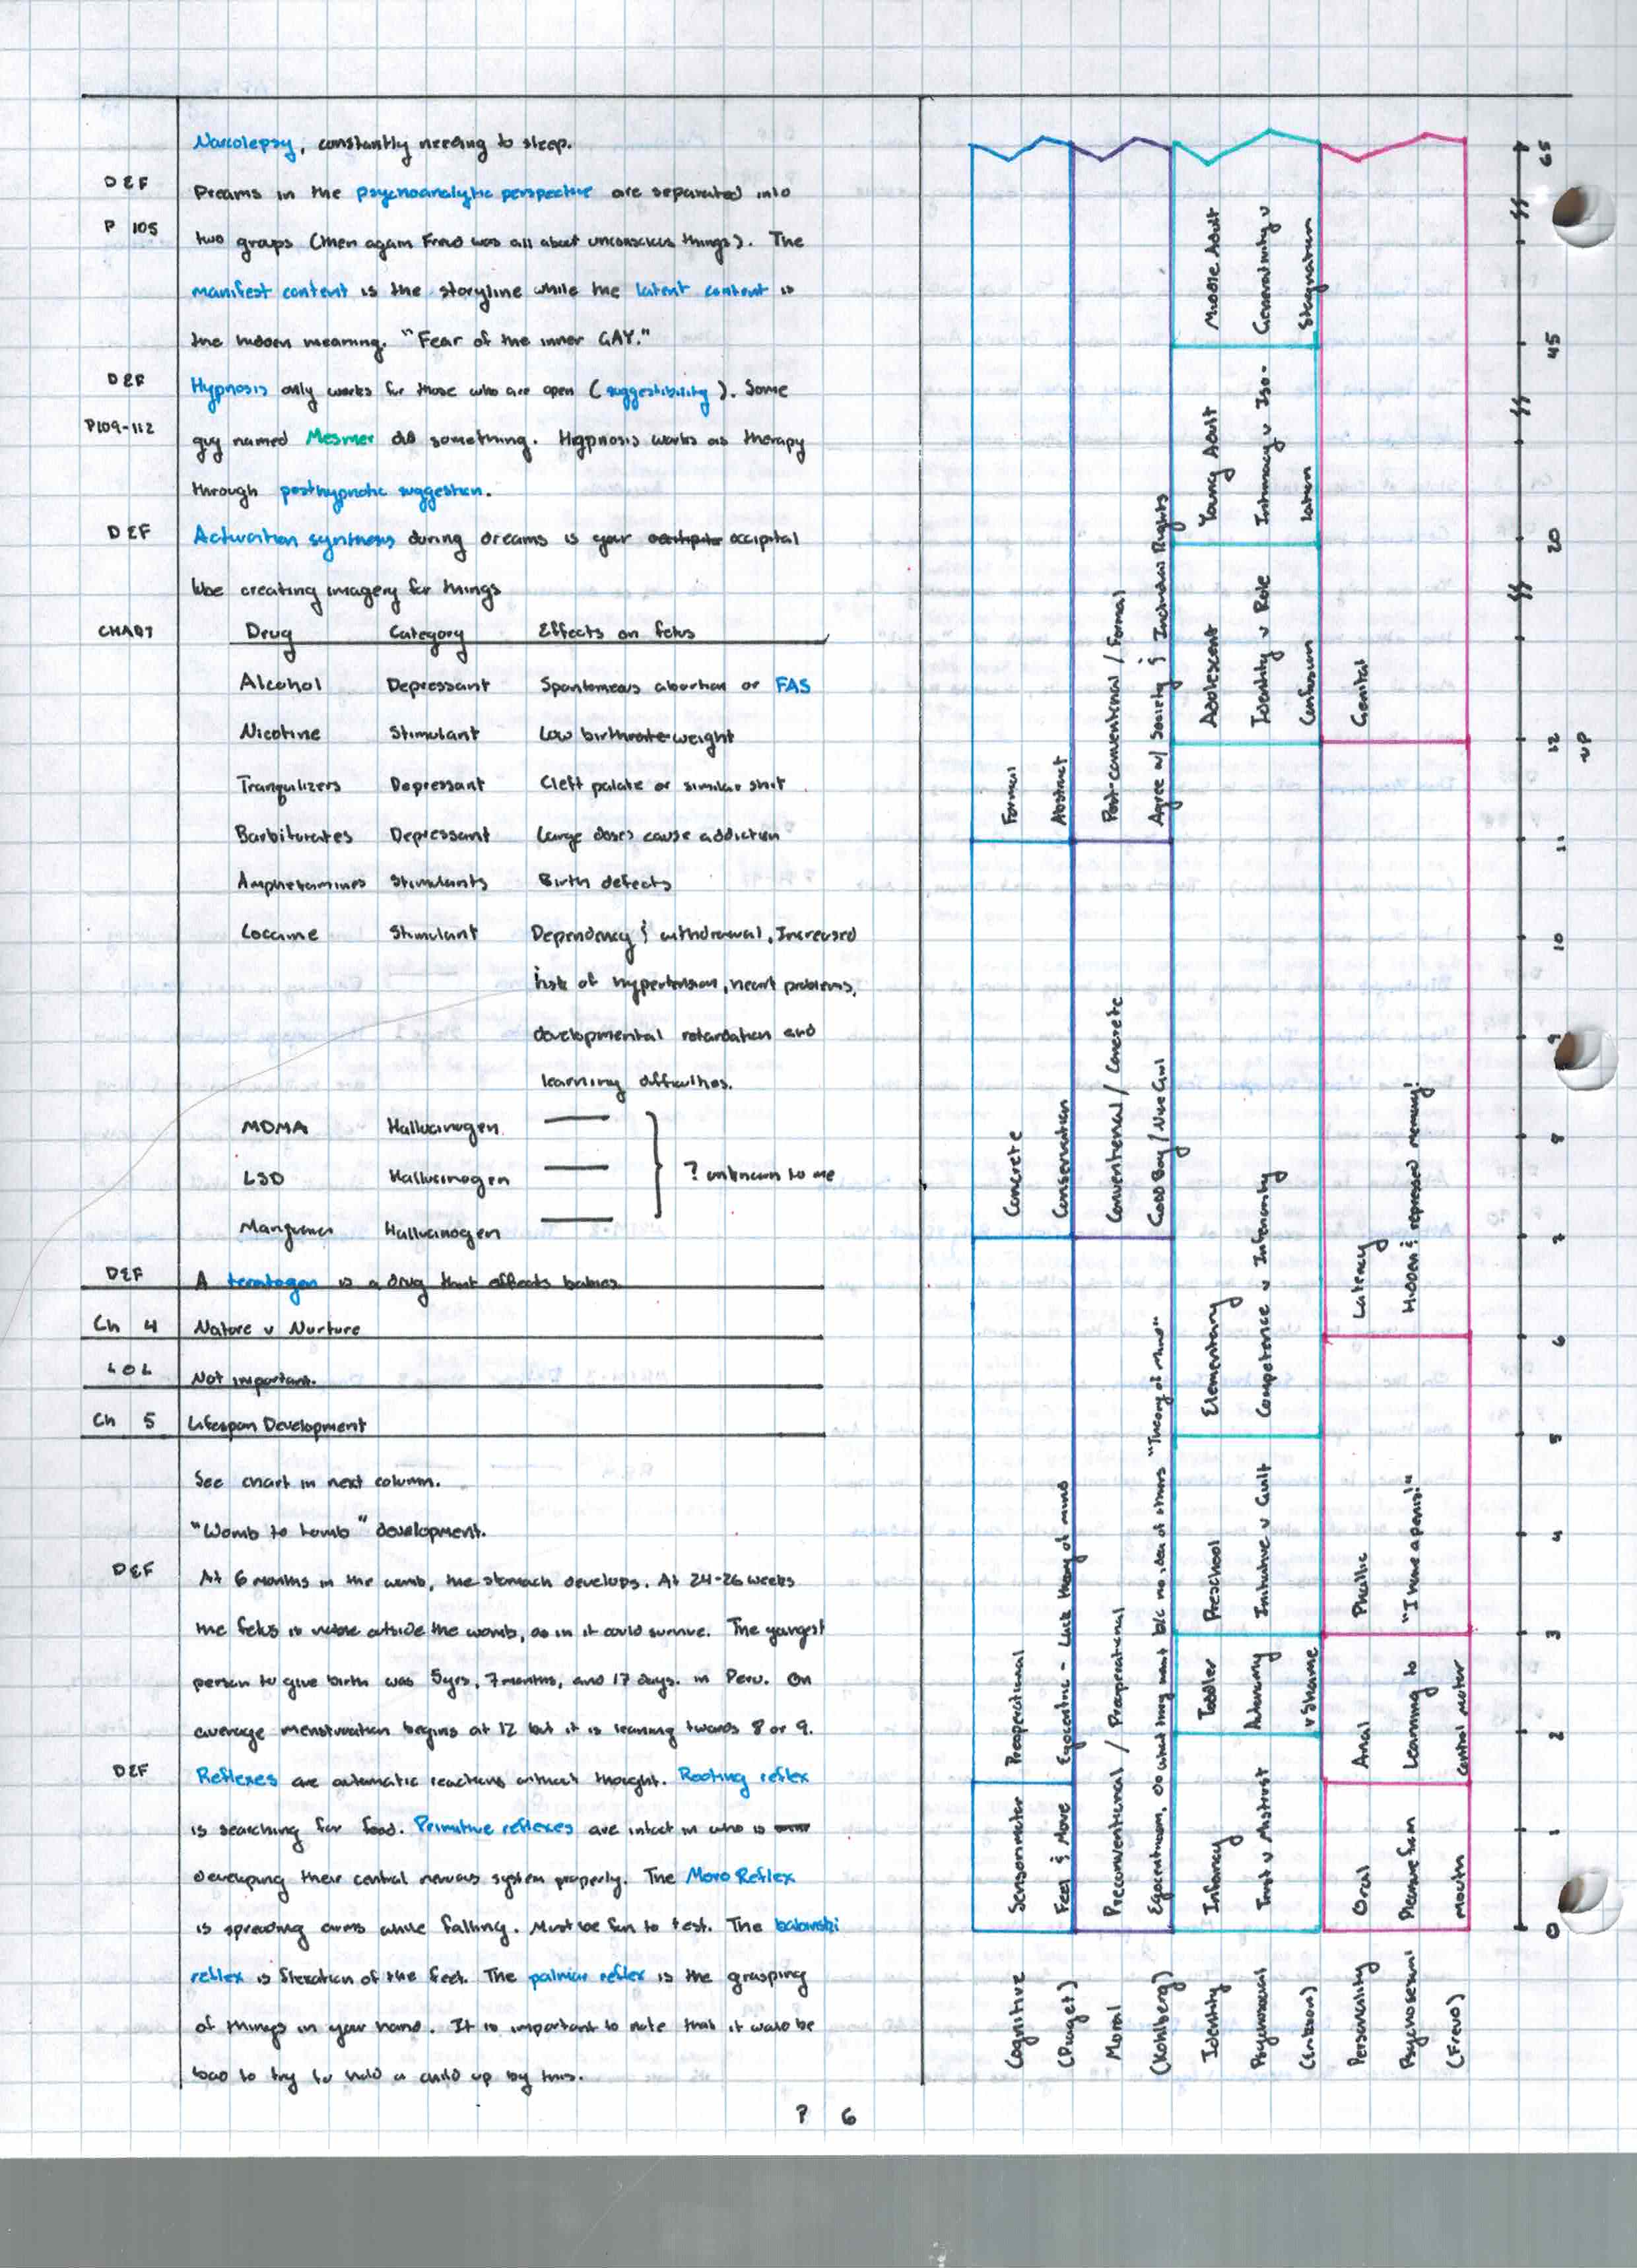 Narcolepsy, constantly needing to sleep.
DEF Dreams in the psychoanalytic perspective are separated into
P 105 two groups (then again Freud was all about unconscious things). The
manifest content is the storyline while the latent content is
the hidden meaning. "Fear of the inner GAY."
DEF Hypnosis only works for those who are open (suggestibility). Some
P109-112 guy named Mesmer did something. Hypnosis works as therapy
through posthypnotic suggestion.
DEF Activation synthesis during dreams is your occipital
lobe creating imagery for things
CHART Drug Category Effects on fetus
Alcohol Depressant Spontaneous abortion or FAS
Nicotine Stimulant Low birthrate weight
Tranquilizers Depressant Cleft palate or similar shit
Barbiturates Depressant Large doses cause addiction
Amphetamines Stimulants Birth defects
Cocaine Stimulant Dependency & withdrawal, Increased
risk of hypertension, heart problems,
developmental retardation and
learning difficulties.
MDMA Hallucinogen
LSD Hallucinogen ? unknown to me
Marijuana Hallucinogen
DEF A teratogen is a drug that effects babies
Ch 4 Nature v Nurture
LOL Not important.
Ch 5 Lifespan Development
See chart in next column.
"Womb to tomb" development.
DEF At 6 months in the womb, the stomach develops. At 24-26 weeks
the fetus is viable outside the womb, as in it could survive. The youngest
person to give birth was 5yrs, 7months, and 17 days. in Peru. On
average menstruation begins at 12 but it is leaning towards 8 or 9.
DEF Reflexes are automatic reactions without thought. Rooting reflex
is searching for food. Primitive reflexes are intact in who is
developing their central nervous system properly. The Moro Reflex
is spreading arms while falling. Must be fun to test. The babinski
reflex is flexation of the feet. The palmar reflex is the grasping
of things in your hand. It is important to note that it would be
bad to try to hold a child up by this.
Cognitive
(Piaget)
Sensorimotor
Feel & Move
Preoperational
Egocentric - Lack theory of mind
Concrete
Conservation
Formal
Abstract
Moral
(Kohlberg)
Preconventional / Preoperational
Egocentrism, Do what they want b/c no idea of others "Theory of Mind"
Conventional / Concrete
Good Boy / Nice Girl
Post-conventional / Formal
Agree w/ Society & Individual Rights
Identity
Psychosocial
(Erikson)
Infancy
Trust v Mistrust
Toddler
Autonomy
v Shame
Preschool
Initiative v Guilt
Elementary
Competence v Inferiority
Adolescent
Identity v Role
Confusion
Young Adult
Intimacy v Iso-
lation
Middle Adult
Generativity v
Stagnation
Personality
Psychosexual
(Freud)
Oral
Pleasure from
mouth
Anal
Learning to
control motor
Phallic
"I have a penis!"
Latency
Hidden & repressed memory!
Genital
0 1 2 3 4 5 6 7 8 9 10 11 12 20 45 65
up
P 6